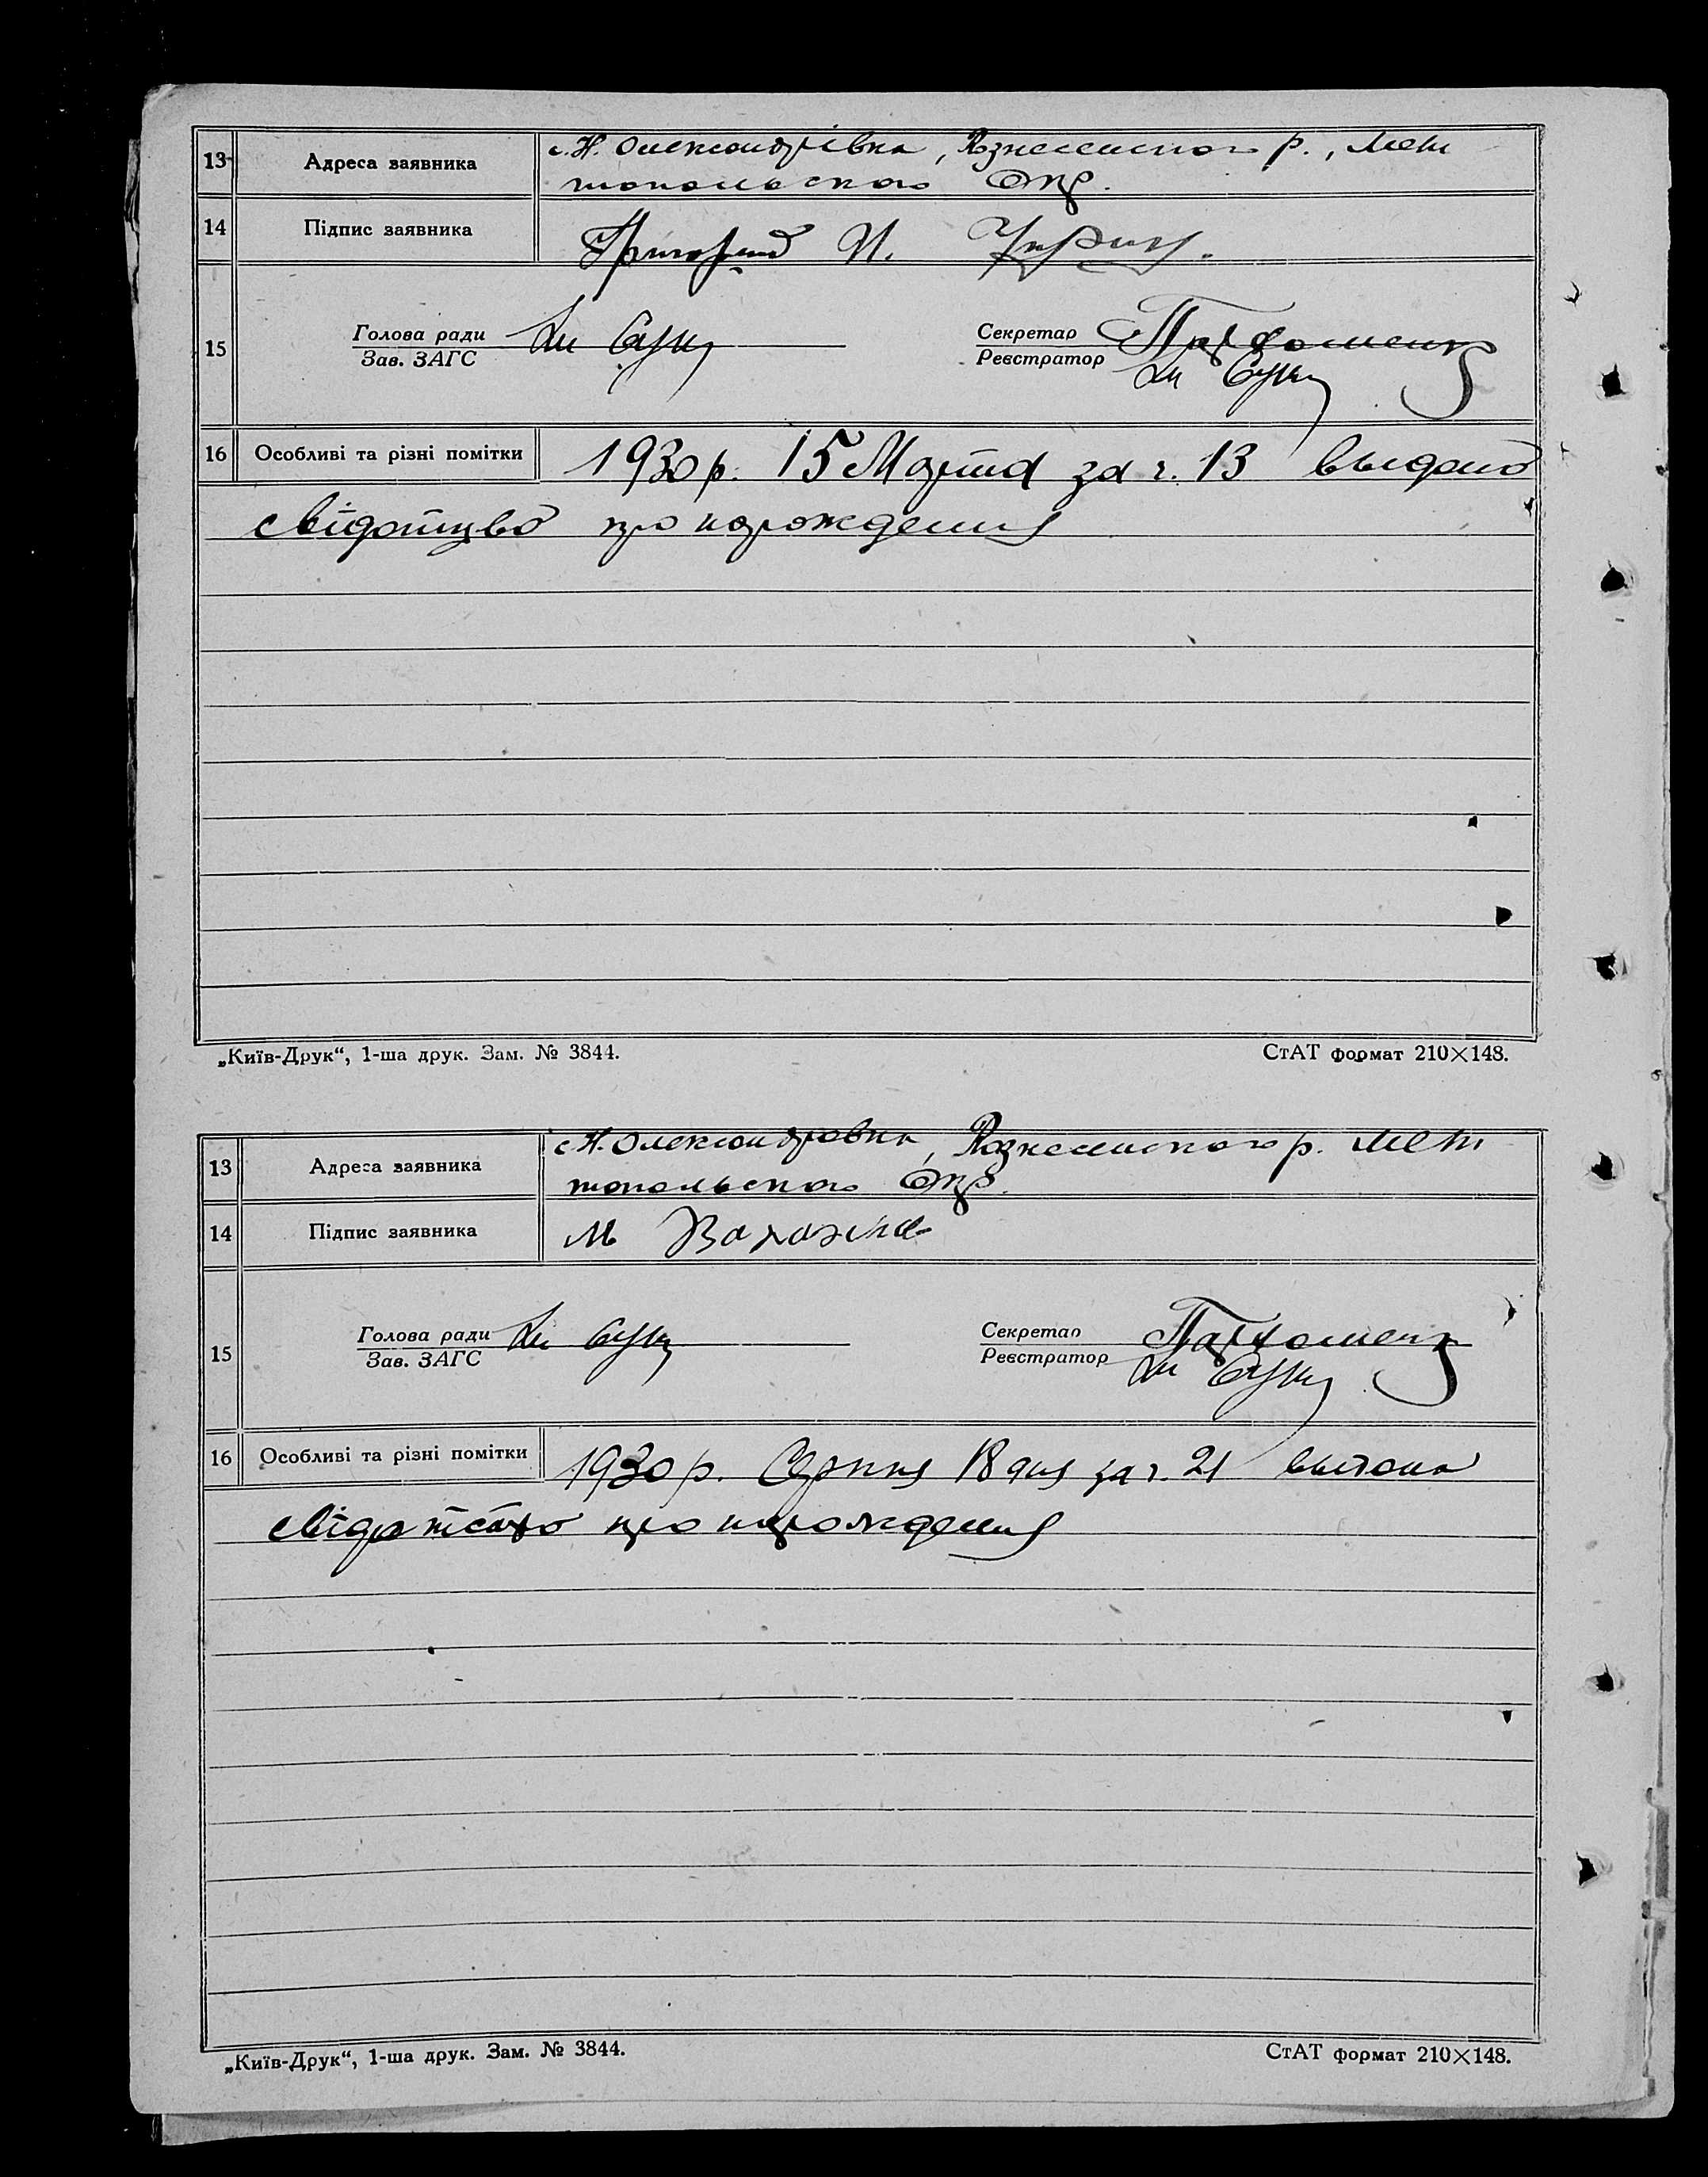 13 Адреса заявника с. Н. Олександрівка, Вознесенского р., Мели
топольського Окр.
14 Підпис заявника Григорий И.
15 Голова ради
Зав. ЗАГС
Секретар Пархоменко
Реєстратор
16 Особливі та різні помітки 1930 р. 15 Марта за ч. 13 выдано
свідотцво про нарождения
„Київ-Друк“, 1-ша друк. Зам. № 3844. СтАТ формат 210×148.
13 Адреса заявника с. Н. Олександровка, Вознесенского р. Мели
топольского Окр.
14 Підпис заявника М
15 Голова ради
Зав. ЗАГС
Секретар Пархоменко
Реєстратор
16 Особливі та різні помітки 1930 р. Серпня 18 дня за ч. 21
свідотство про нарождения
„Київ-Друк“, 1-ша друк. Зам. № 3844. СтАТ формат 210×148.